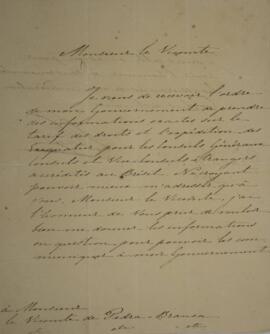 Monsieur le Vicomte
Je viens de recevoir l'ordre
de mon Gouvernement de prendre
des informations exactes sur le
tarif des droits et l'expédition des
Exequatur pour les Consuls Généraux
Consuls et Vice-Consuls étrangers
accrédités au Brésil. Ne croyant
pouvoir mieux m'adresser qu'à
vous, Monsieur le Vicomte, j'ai
l'honneur de Vous prier de vouloir
bien me donner les informations
en question pour pouvoir les com-
muniquer à mon Gouvernement
à Monsieur
le Vicomte de Pedra-Branca